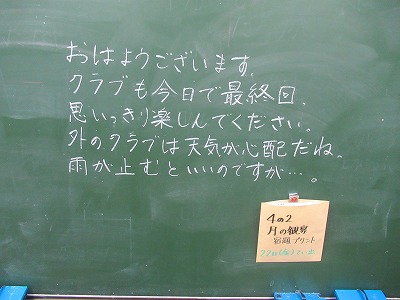 おはようございます。
クラブも今日で最終回。
思いっきり楽しんでください。
外のクラブは天気が心配だね。
雨が止むといいのですが…。
4の2
月の観察
宿題プリント